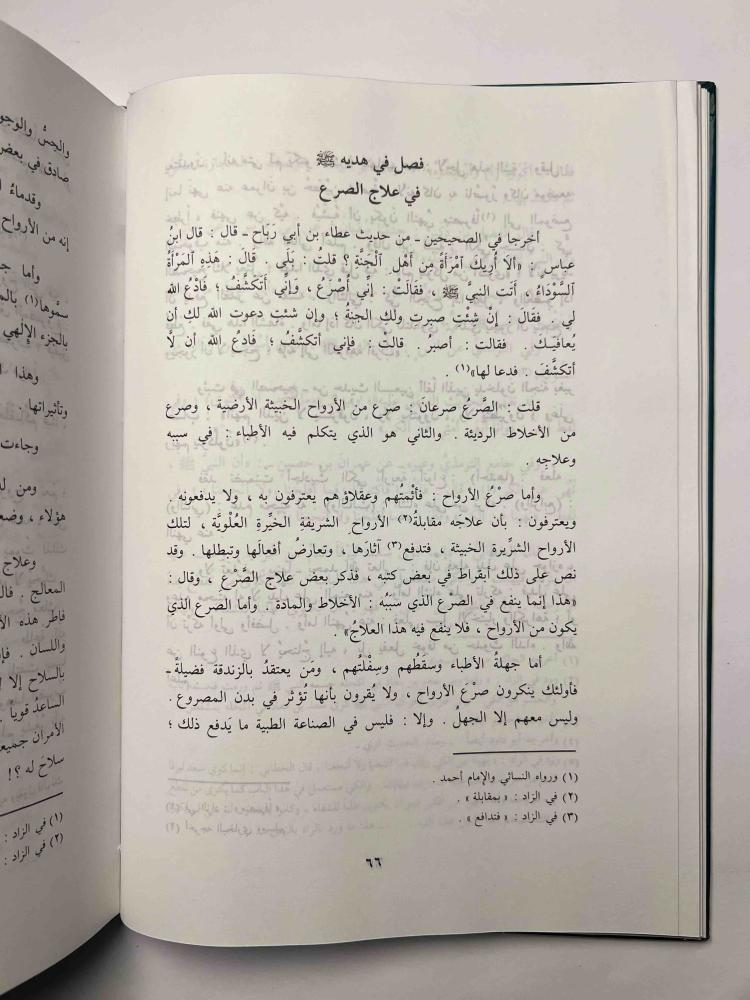 فصل في هديه ﷺ
في علاج الصرع
أخرجا في الصحيحين ـ من حديث عطاء بن أبي رَبَاح ـ قال : قال ابنُ
عباس : «ألاَ أُرِيكَ ٱمْرَأةً مِن أَهْلِ ٱلْجَنَّةِ ؟ قلتُ : بَلَى . قَالَ : هَذِهِ ٱلمَرْأَةُ
ٱلسَّوْدَاءُ ، أتَت النبيَّ ﷺ ، فقَالَتْ : إنِّي أُصْرَعُ ، وَإنِّي أَتَكَشَّفُ ؛ فَادْعُ الله
لي . فقالَ : إنْ شئْتِ صبرتِ ولكِ الجنةُ ؛ وإن شئتِ دعوت الله لكِ أن
يُعافيَـكِ . فقالت : أصبرُ . قالتْ : فإني أتكشَّفُ ؛ فَادعُ الله أن لاَّ
أتكشَّفَ . فدعا لها»(١) .
قلت : الصَّرَعُ صرعانَ : صرع من الأرواح الخبيثة الأرضية ، وصرع
من الأخلاط الرديئة . والثاني هو الذي يتكلم فيه الأطباء : في سببه
وعلاجِه .
وأما صرْعُ الأرواح : فأئمتُهم وعقلاؤهم يعترفون به ، ولا يدفعونه .
ويعترفون : بأن علاجَه مقابلةُ(٢) الأرواحِ الشريفةِ الخيِّرةِ العُلْويَّة ، لتلك
الأرواح الشرِّيرة الخبيثة ، فتدفع(٣) آثارَها ، وتعارضُ أفعالَها وتبطلها . وقد
نص على ذلك أبقراط في بعض كتبه ، فذكر بعض علاج الصَّرْع ، وقال :
«هذا إنما ينفع في الصرْع الذي سبَبُه : الأخلاط والمادة . وأما الصَرع الذي
يكون من الأرواح ، فلا ينفع فيه هذا العلاجُ» .
أما جهلةُ الأطباء وسقَطُهم وسِفْلتُهم ، ومَن يعتقدُ بالزندقة فضيلةً ـ
فأولئك ينكرون صرْعَ الأرواح ، ولا يُقرون بأنها تُؤثر في بدن المصروع .
وليس معهم إلا الجهلُ . وإلا : فليس في الصناعة الطبية ما يَدفع ذلك ؛
(١) ورواه النسائي والإمام أحمد .
(٢) في الزاد : « بمقابلة » .
(٣) في الزاد : « فتدافع » .
٦٦
والحِسُّ والوجو
صادق في بعض
وقدماءُ ا
إنه من الأرواح
وأما ج
سمَّوها(١) بالم
بالجزء الإلٰهي
وهذا ا
وتأثيراتها .
وجاءت
ومن له
هؤلاء ، وضع
وعلاج
المعالج . فال
فاطر هذه الأ
واللسان . فإ
بالسلاح إلا
الساعدُ قوياً
الأمران جميع
سلاحَ له ؟!
(١) في الزاد :
(٢) في الزاد :